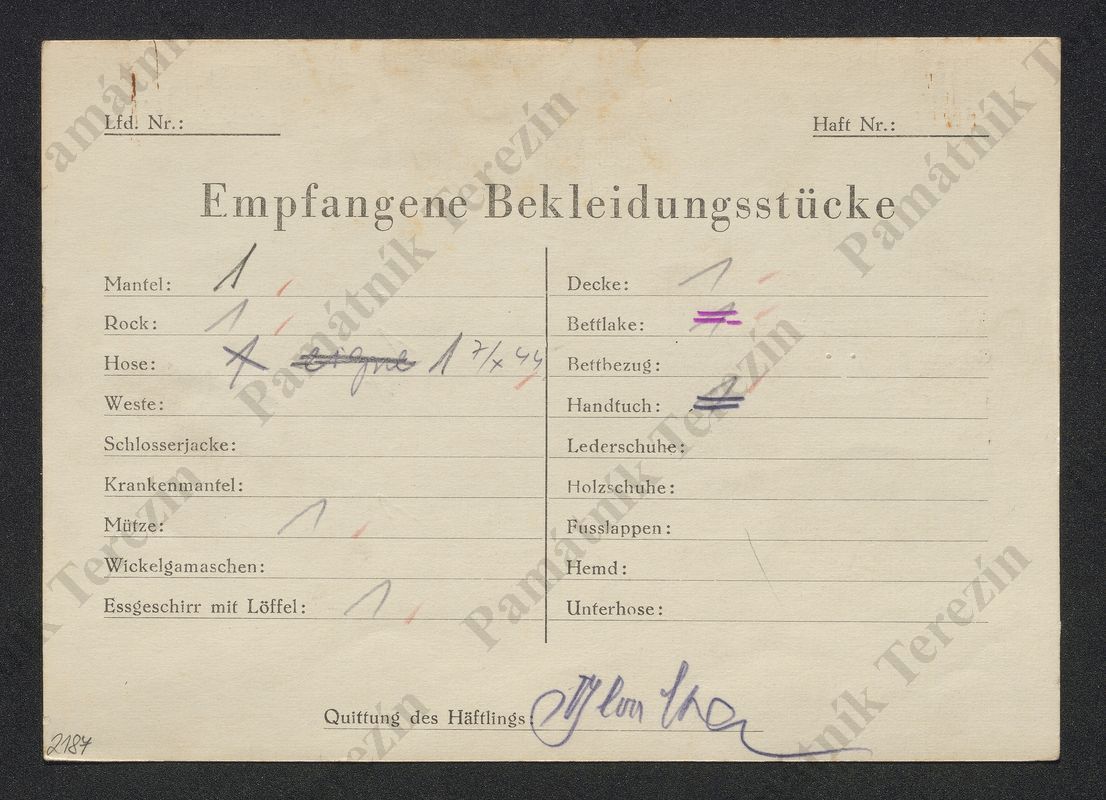 Lfd. Nr.:
Haft Nr.:
Empfangene Bekleidungsstücke
Mantel: 1
Rock: 1
Hose: 1 eigne 1 7/X 44
Weste:
Schlosserjacke:
Krankenmantel:
Mütze: 1
Wickelgamaschen:
Essgeschirr mit Löffel: 1
Decke: 1
Bettlake: 1
Bettbezug:
Handtuch: 1
Lederschuhe:
Holzschuhe:
Fusslappen:
Hemd:
Unterhose:
Quittung des Häftlings:
2187
Památník Terezín
Památník Terezín
Památník Terezín
Památník Terezín
Památník Terezín